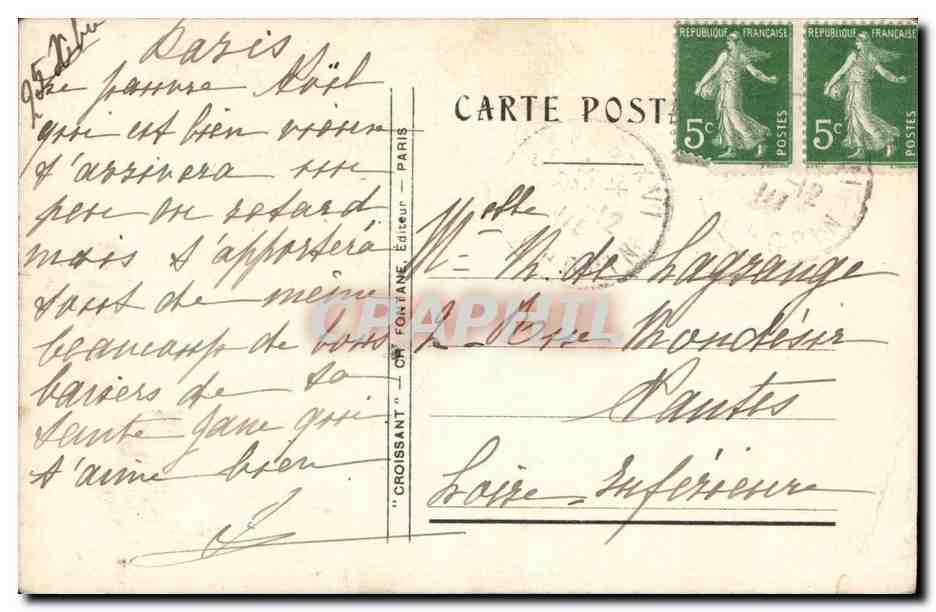 25 Xbre
Paris
Ce pauvre Noël
qui est bien vieux
t'arrivera un
peu en retard
mais t'apportera
tout de même
beaucoup de bons
baisers de ta
tante Jane qui
t'aime bien
"CROISSANT" — CH. FONTANE, Éditeur — PARIS
CARTE POSTA
RÉPUBLIQUE FRANÇAISE
5c
POSTES
RÉPUBLIQUE FRANÇAISE
5c
POSTES
Melle N. de Lagrange
2 - Rue Mondésir
Nantes
Loire-Inférieure
CPAPHIL